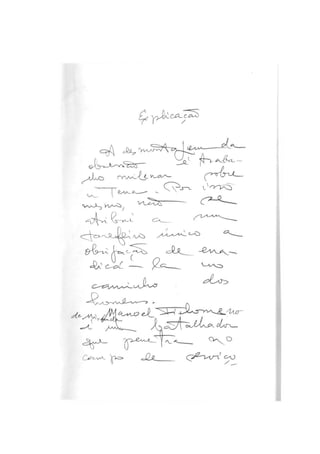 Explicação
A desmontagem da
obsessão é traba-
lho milenar sobre
a Terra. Por isso
mesmo, não se
atribui a um
tarefeiro único a
obrigação de erra-
dicá-la no
caminho dos
homens.
Manoel Philomeno
de Miranda
é um batalhador
que penetra no
campo de serviço